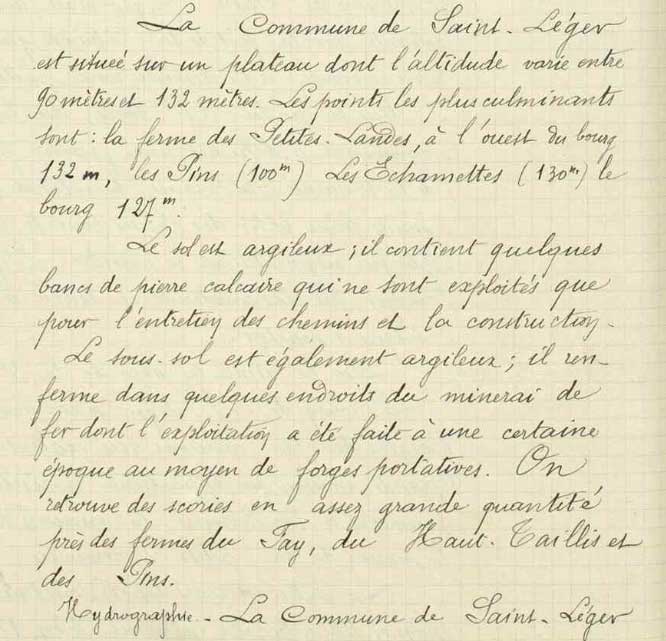 La Commune de Saint-Léger
est située sur un plateau dont l'altidude varie entre
90 mètres et 132 mètres. Les points les plus culminants
sont : la ferme des Petites-Landes, à l'ouest du bourg
132 m, les Pins (100m) Les Echamettes (130m) le
bourg 127m.
Le sol est argileux ; il contient quelques
bancs de pierre calcaire qui ne sont exploités que
pour l'entretien des chemins et la construction.
Le sous-sol est également argileux ; il ren-
ferme dans quelques endroits du minerai de
fer dont l'exploitation a été faite à une certaine
époque au moyen de forges portatives. On
retrouve des scories en assez grande quantité
près des fermes du Fay, du Haut-Taillis et
des Pins.
Hydrographie - La Commune de Saint-Léger